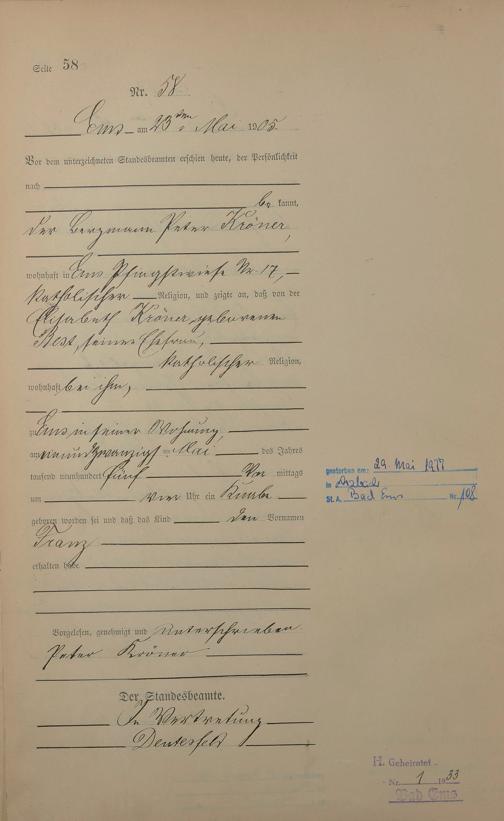 Seite 58
Nr. 58
Ems am 23ten Mai 1905
Vor dem unterzeichneten Standesbeamten erschien heute, der Persönlichkeit
nach
be kannt,
der Bergmann Peter Kröner,
wohnhaft in Ems Pfingstwiese Nr. 17,
katholischer Religion, und zeigte an, daß von der
Elisabeth Kröner geborenen
Best, seiner Ehefrau,
katholischer Religion,
wohnhaft bei ihm,
zu Ems in seiner Wohnung,
am einundzwanzigsten Mai des Jahres
tausend neunhundert fünf Vor mittags
um vier Uhr ein Knabe
geboren worden sei und daß das Kind den Vornamen
Franz
erhalten habe
Vorgelesen, genehmigt und unterschrieben
Peter Kröner
Der Standesbeamte.
In Vertretung
gestorben am: 29. Mai 1977
in Arzbach
St. A. Bad Ems Nr. 108
H. Geheiratet
Nr. 1 1933
Bad Ems